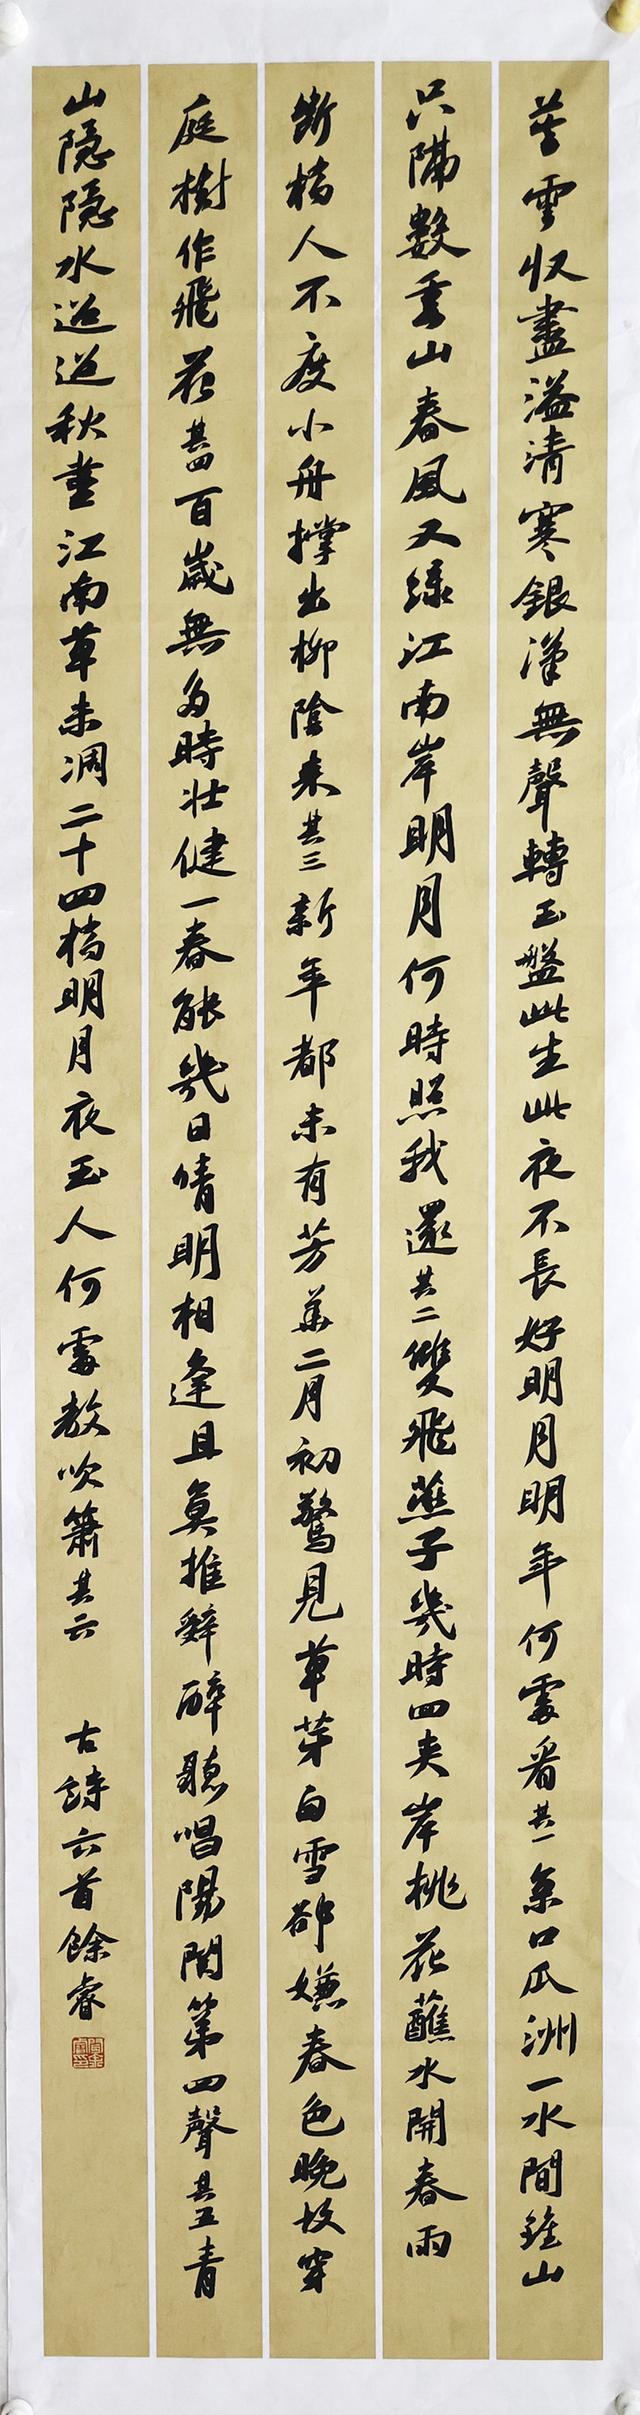 莫雲収盡溢清寒銀漢無聲轉玉盤此生此夜不長好明月明年何處看其一京口瓜洲一水間鍾山
只隔數重山春風又緑江南岸明月何時照我還其二雙飛燕子幾時回夾岸桃花蘸水開春雨
斷橋人不度小舟撑出柳陰來其三新年都未有芳華二月初驚見草芽白雪却嫌春色晚故穿
庭樹作飛花其四百歲無多時壯健一春能幾日晴明相逢且莫推辭醉聽唱陽關第四聲其五青
山隱隱水迢迢秋盡江南草未凋二十四橋明月夜玉人何處教吹簫其六
古詩六首餘睿